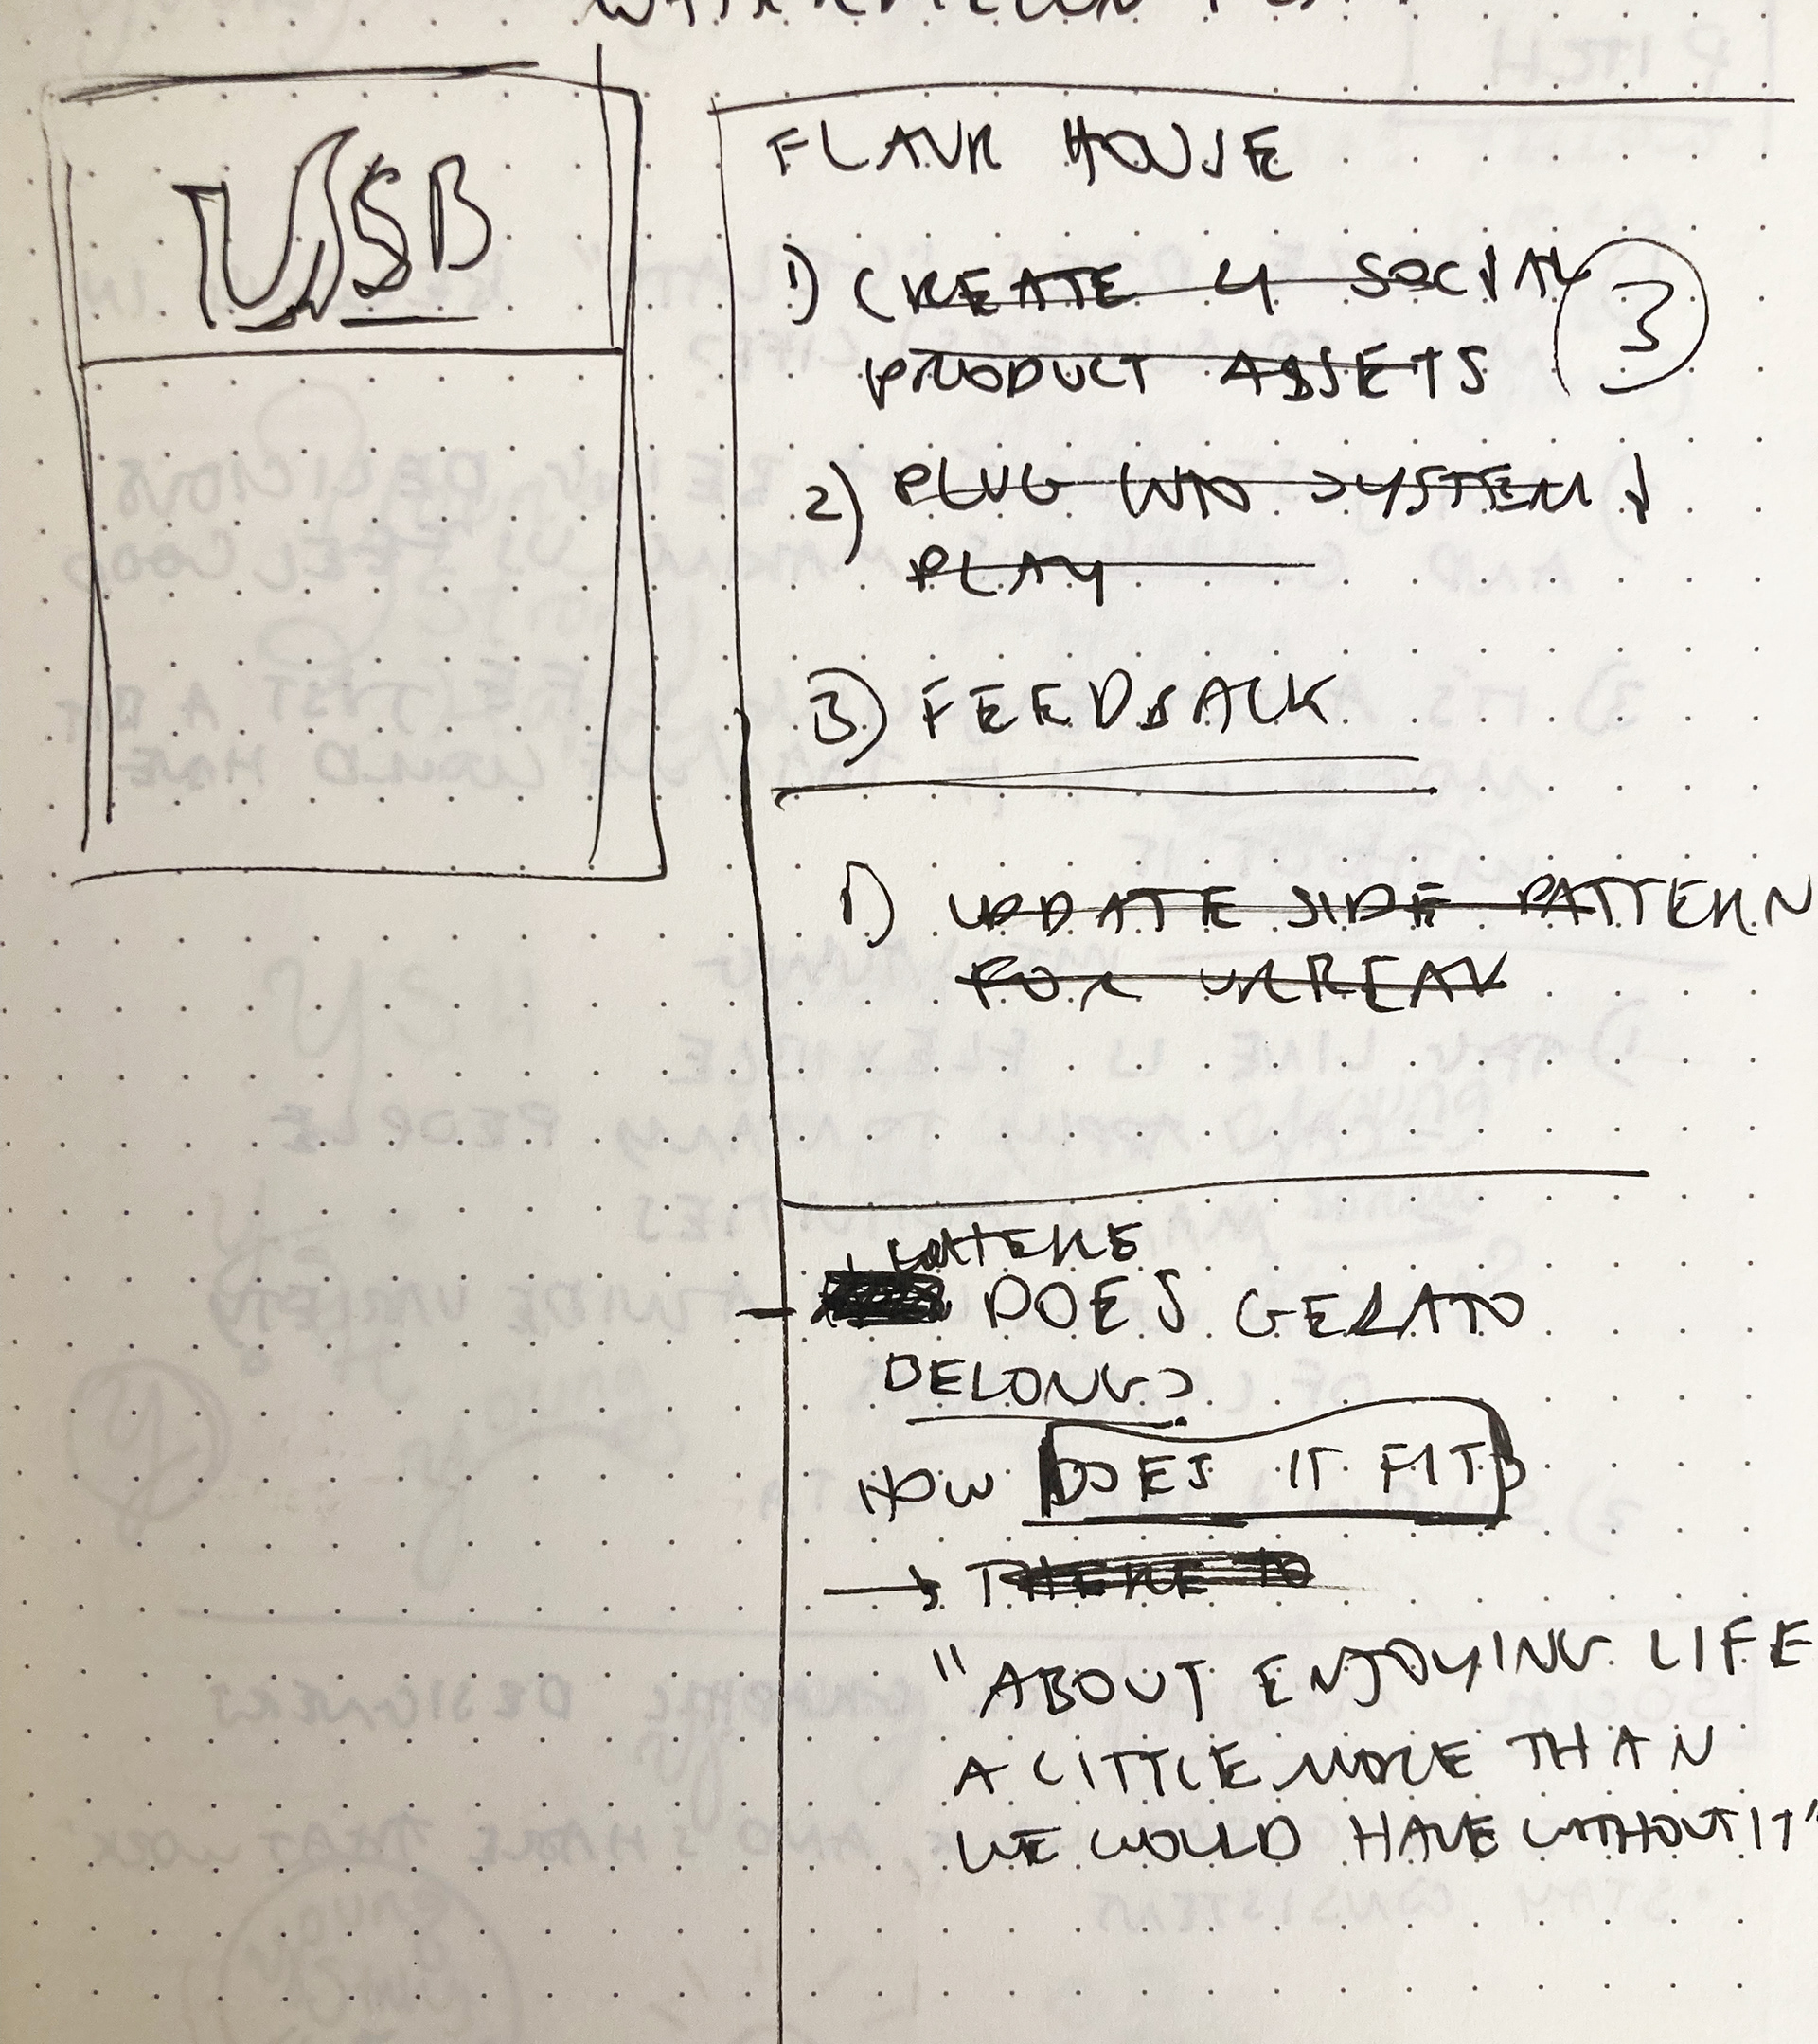 USB
FLAVR HOUSE
1) CREATE 4 SOCIAL
3
PRODUCT ASSETS
2) PLUG INTO SYSTEM &
PLAY
3) FEEDBACK
1) UPDATE SIDE PATTERN
FOR UNREAL
WHERE
- DOES GELATO
BELONG?
HOW DOES IT FIT?
→ THERE TO
"ABOUT ENJOYING LIFE
A LITTLE MORE THAN
WE WOULD HAVE WITHOUT IT"